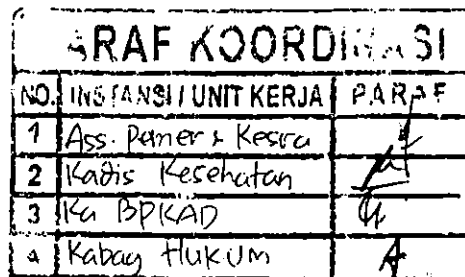 PARAF KOORDINASI
NO. INSTANSI / UNIT KERJA PARAF
1 Ass. Pemer & Kesra
2 Kadis Kesehatan
3 Ka BPKAD
4 Kabag Hukum